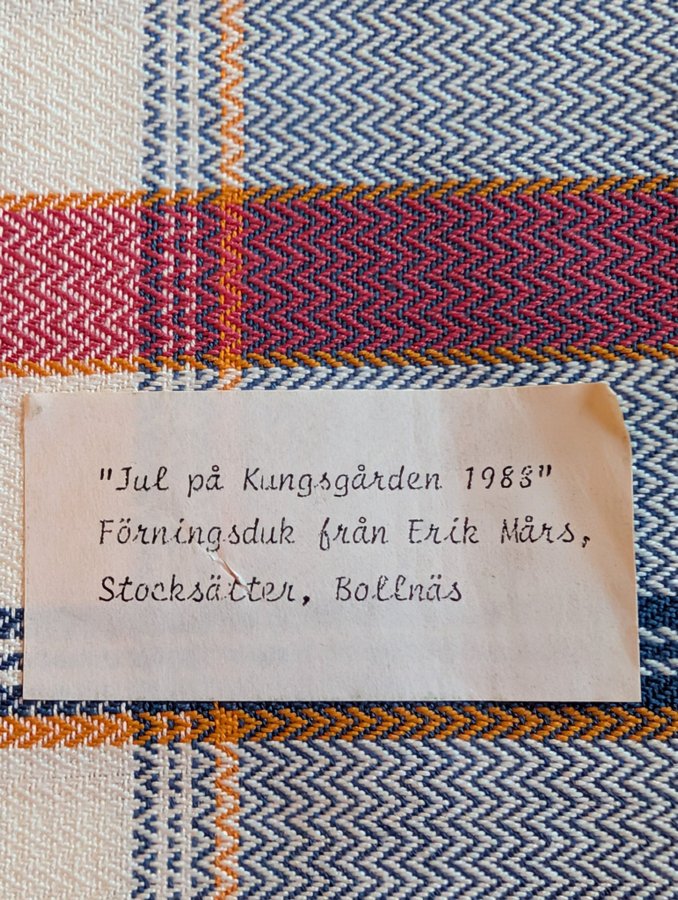 "Jul på Kungsgården 1988"
Förningsduk från Erik Mårs,
Stocksätter, Bollnäs